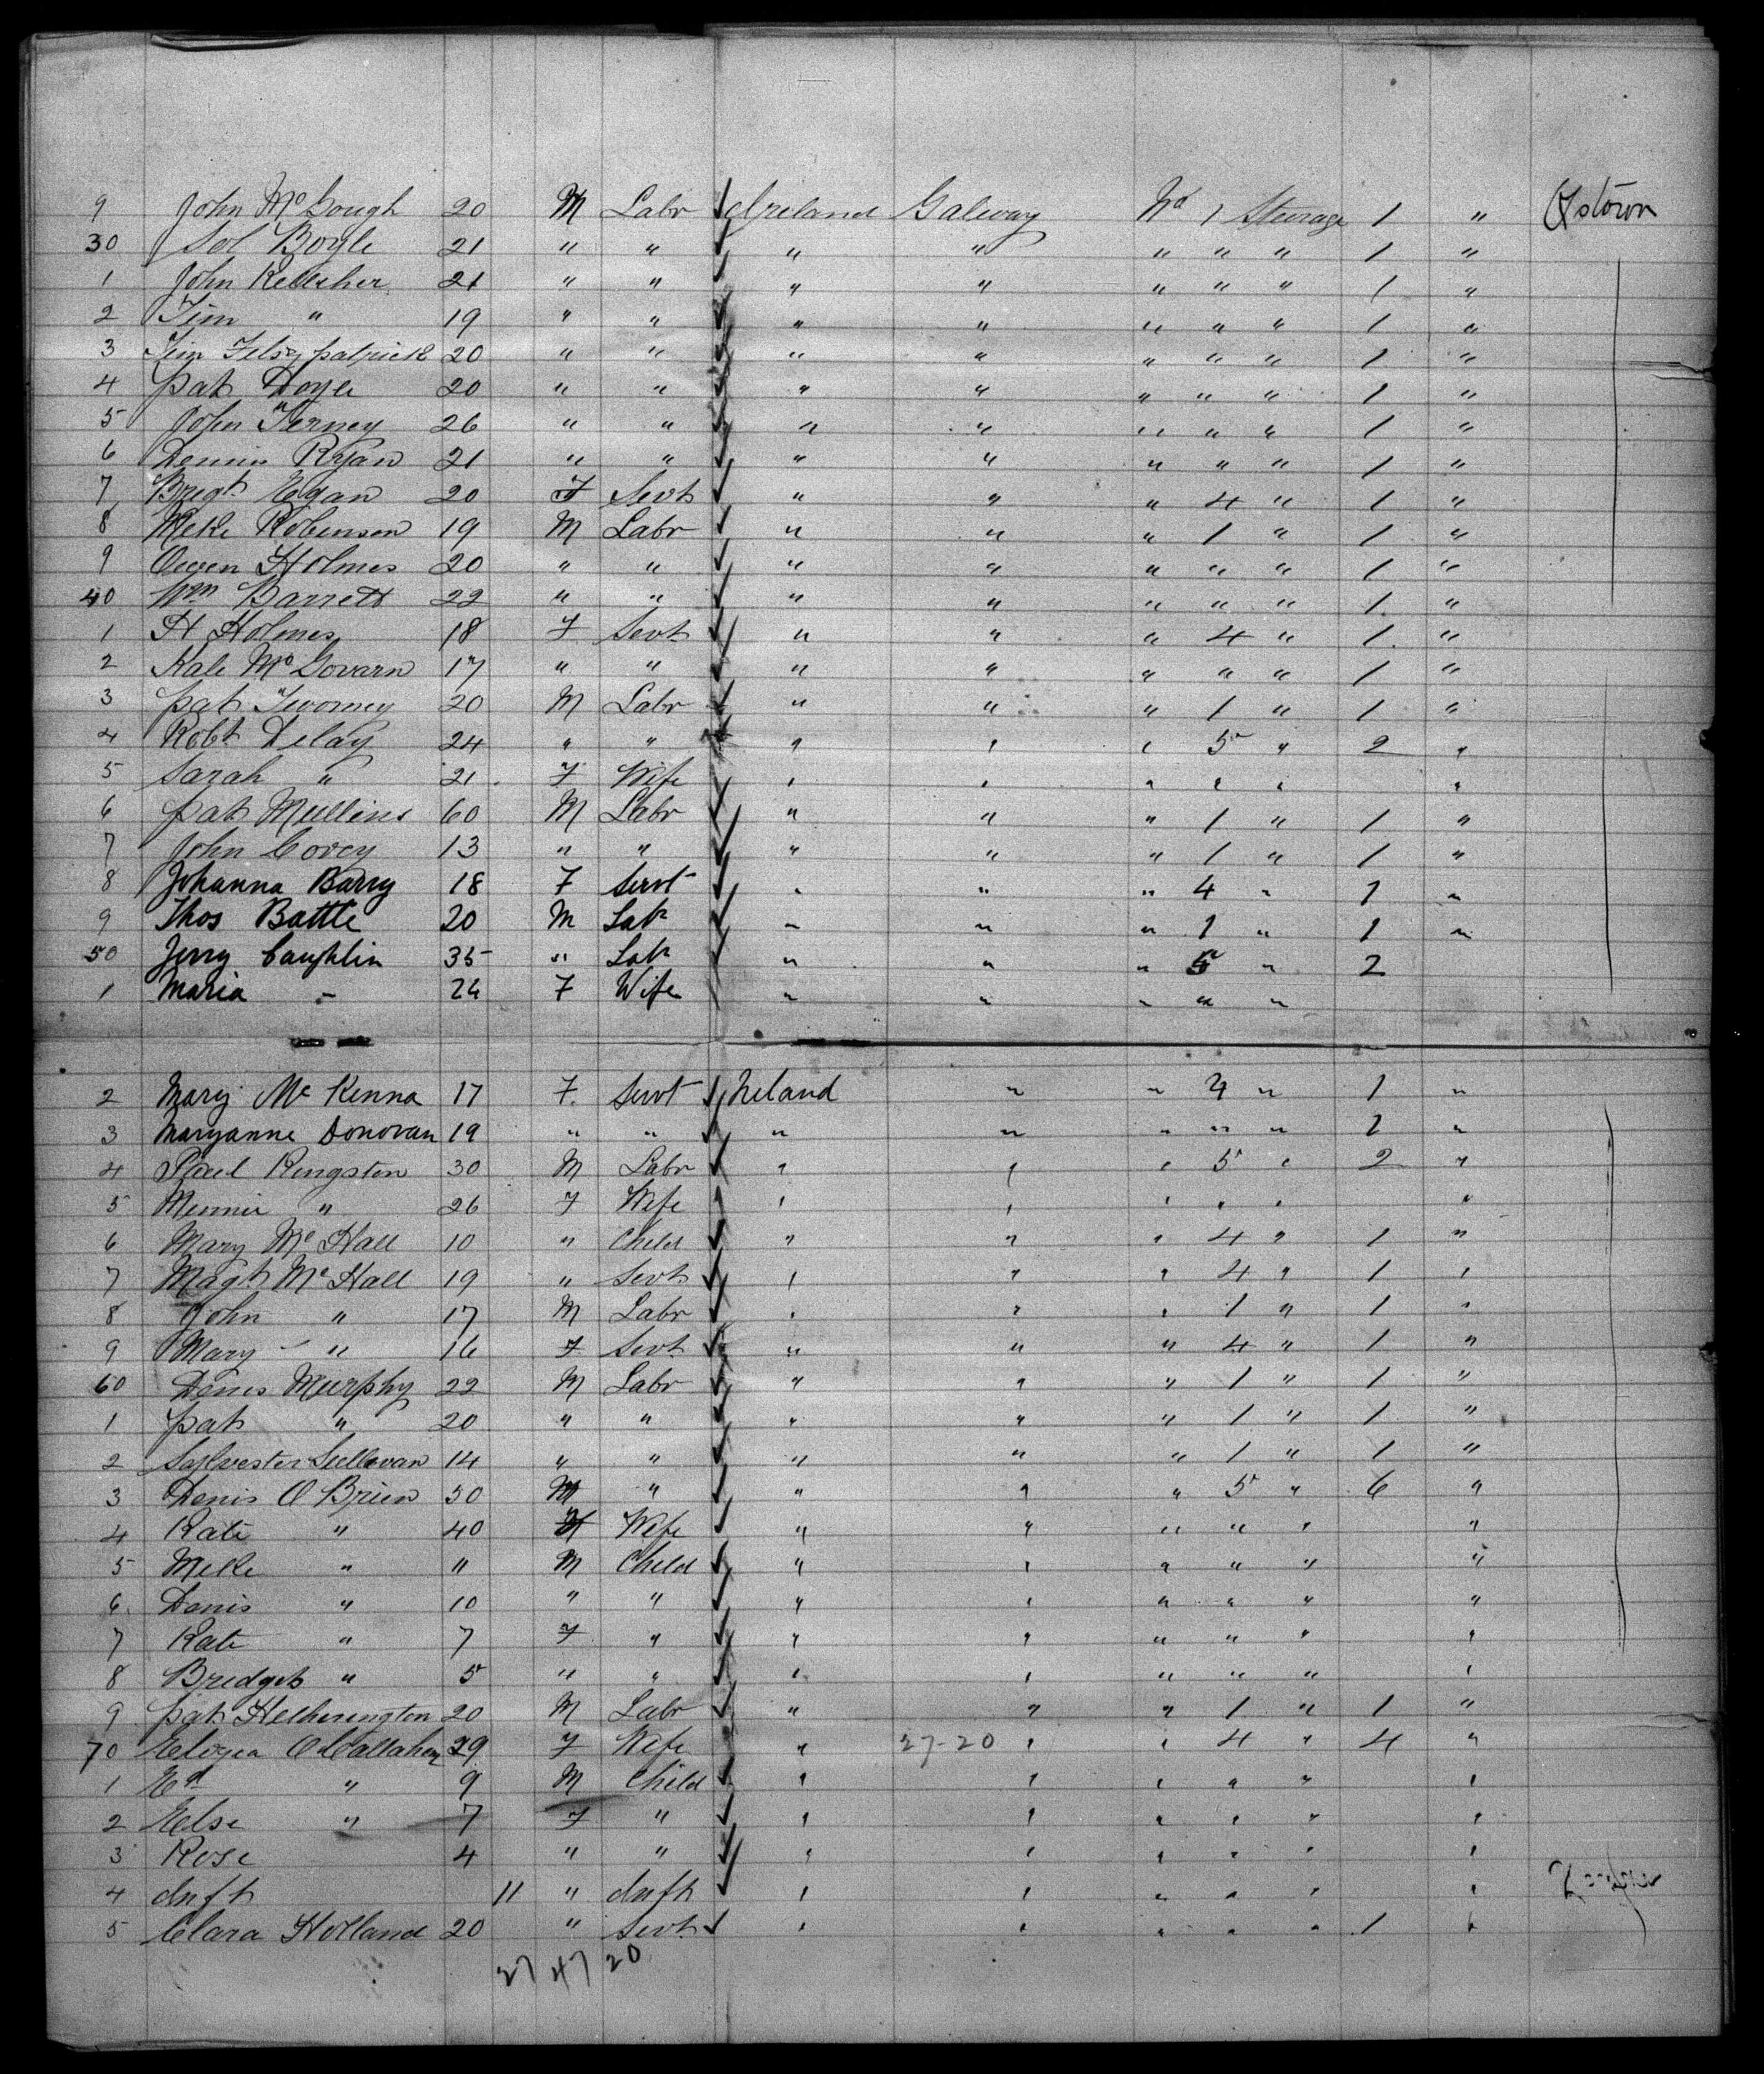 9 John McGough 20 M Labr ✓ Ireland Galway No 1 Steerage 1 " Qstown
30 Sol Boyle 21 " " ✓ " " " " " 1 "
1 John Kelleher 21 " " ✓ " " " " " 1 "
2 Tim " 19 " " ✓ " " " " " 1 "
3 Jim Fitzpatrick 20 " " ✓ " " " " " 1 "
4 Pat Doyle 20 " " ✓ " " " " " 1 "
5 John Tierney 26 " " ✓ " " " " " 1 "
6 Dennis Ryan 21 " " ✓ " " " " " 1 "
7 Bregt Egan 20 F Servt ✓ " " " 4 " 1 "
8 Mike Robinson 19 M Labr ✓ " " " 1 " 1 "
9 Owen Holmes 20 " " ✓ " " " " " 1 "
40 Wm Barrett 22 " " ✓ " " " " " 1 "
1 H Holmes 18 F Servt ✓ " " " 4 " 1 "
2 Kate McGovarn 17 " " ✓ " " " " " 1 "
3 Pat Twomey 20 M Labr ✓ " " " 1 " 1 "
4 Robt Delay 24 " " ✓ " " " 5 " 2 "
5 Sarah " 21 F Wife ✓ " " " " " "
6 Pat Mullins 60 M Labr ✓ " " " 1 " 1 "
7 John Covey 13 " " ✓ " " " 1 " 1 "
8 Johanna Barry 18 F Servt ✓ " " " 4 " 1 "
9 Thos Battle 20 M Lab ✓ " " " 1 " 1 "
50 Jerry Caughlin 35 " Lab ✓ " " " 5 " 2
1 Maria " 24 F Wife " " " " "
2 Mary McKenna 17 F. Servt ✓ Ireland " " 4 " 1 "
3 Maryanne Donovan 19 " " ✓ " " " " " 1 "
4 Paul Kingston 30 M Labr ✓ " " " 5 " 2 "
5 Minnie " 26 F Wife " " " " " "
6 Mary McHall 10 " Child ✓ " " " 4 " 1 "
7 Magt McHall 19 " Servt ✓ " " " 4 " 1 "
8 John " 17 M Labr ✓ " " " 1 " 1 "
9 Mary " 16 F Servt ✓ " " " 4 " 1 "
60 Denis Murphy 22 M Labr ✓ " " " 1 " 1 "
1 Pat " 20 " " ✓ " " " 1 " 1 "
2 Sylvester Sullivan 14 " " ✓ " " " 1 " 1 "
3 Denis O Brien 50 M " ✓ " " " 5 " 6 "
4 Kate " 40 F Wife ✓ " " " " " "
5 Mike " 11 M Child ✓ " " " " " "
6 Denis " 10 " " ✓ " " " " " "
7 Kate " 7 F " ✓ " " " " " "
8 Bridget " 5 " " ✓ " " " " " "
9 Pat Hetherington 20 M Labr ✓ " " " 1 " 1 "
70 Eliza O Callahan 29 F Wife " 27-20 " " 4 " 4 "
1 Ed " 9 M Child ✓ " " " " " "
2 Else " 7 F " ✓ " " " " " "
3 Rose 4 " " ✓ " " " " " "
4 Inft 11 " Inft ✓ " " " " " "
5 Clara Holland 20 " Servt ✓ " " " " " 1 "
27 47 20